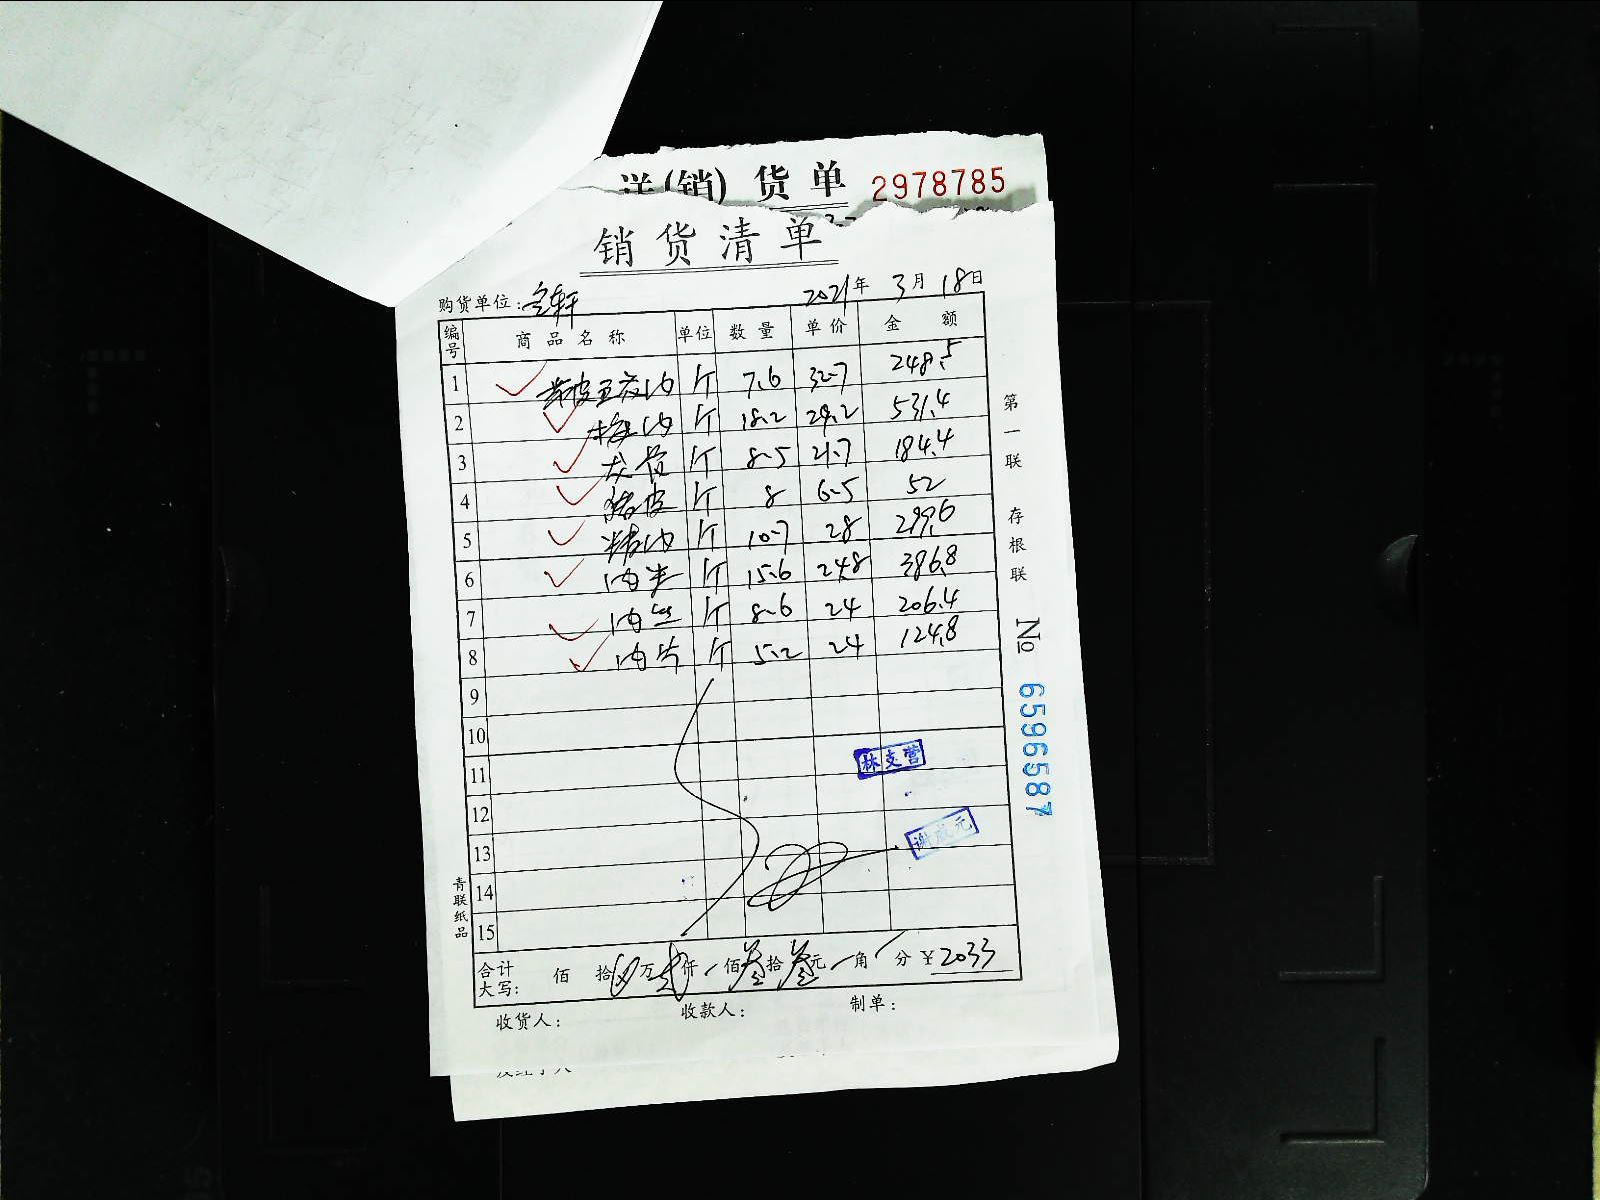 送(销) 货 单 2978785
销货清单
购货单位:名轩 2021年 3月 18日
编号 商品名称 单位 数量 单价 金额
1 带皮五花肉 斤 7.6 32.7 248.5
2 梅肉 斤 18.2 29.2 531.4
3 龙骨 斤 8.5 21.7 184.4
4 猪皮 斤 8 6.5 52
5 精肉 斤 10.7 28 299.6
6 肉末 斤 15.6 24.8 386.8
7 肉丝 斤 8.6 24 206.4
8 肉片 斤 5.2 24 124.8
9
10
11
12
13
14
15
林支营
谢成元
合计大写: 佰 拾 万 贰仟 佰 叁拾 叁元 角 分 ¥2033
收货人: 收款人: 制单:
第一联 存根联 No 6596587
青联纸品